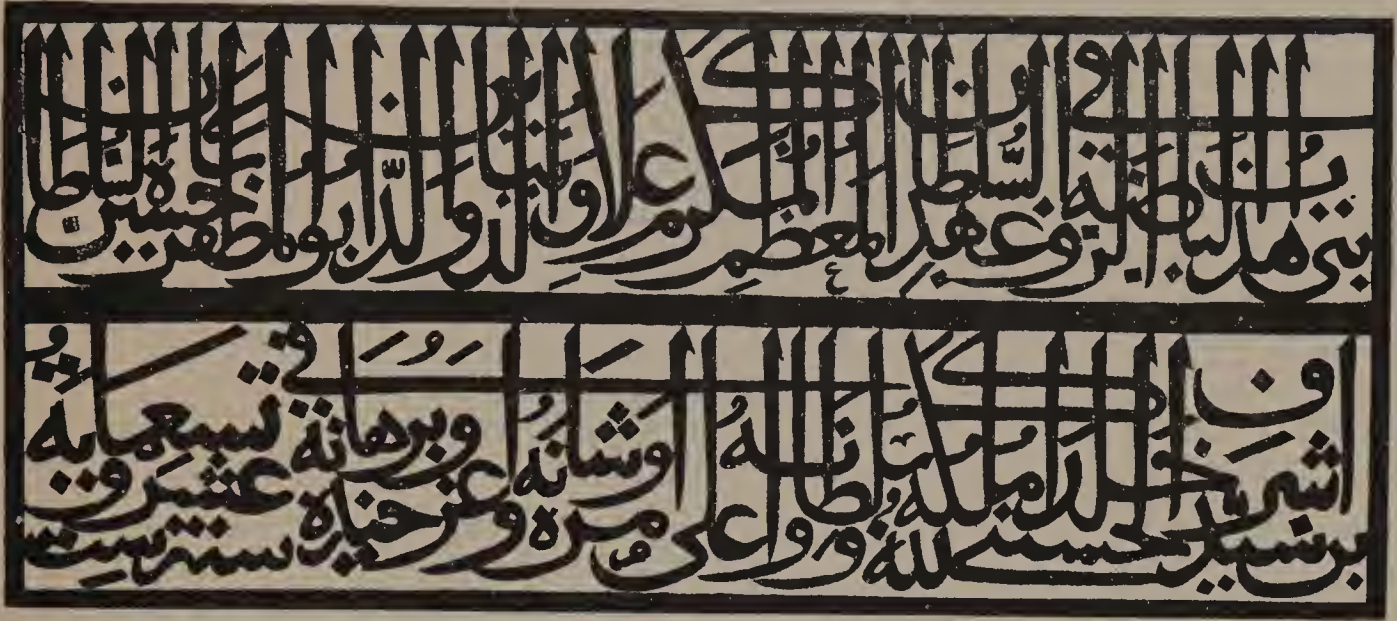 بنيان هذ الباب الروضة في عهد السلطان المعظم المكرم علاو الدنيا والدين ابو المظفر حسين شاه السلطان
بن سيد اشرف الحسيني خلد الله ملكه وسلطانه واعلى امره وشانه واعز جنده وبرهانه في سنة ست عشر وتسعماية